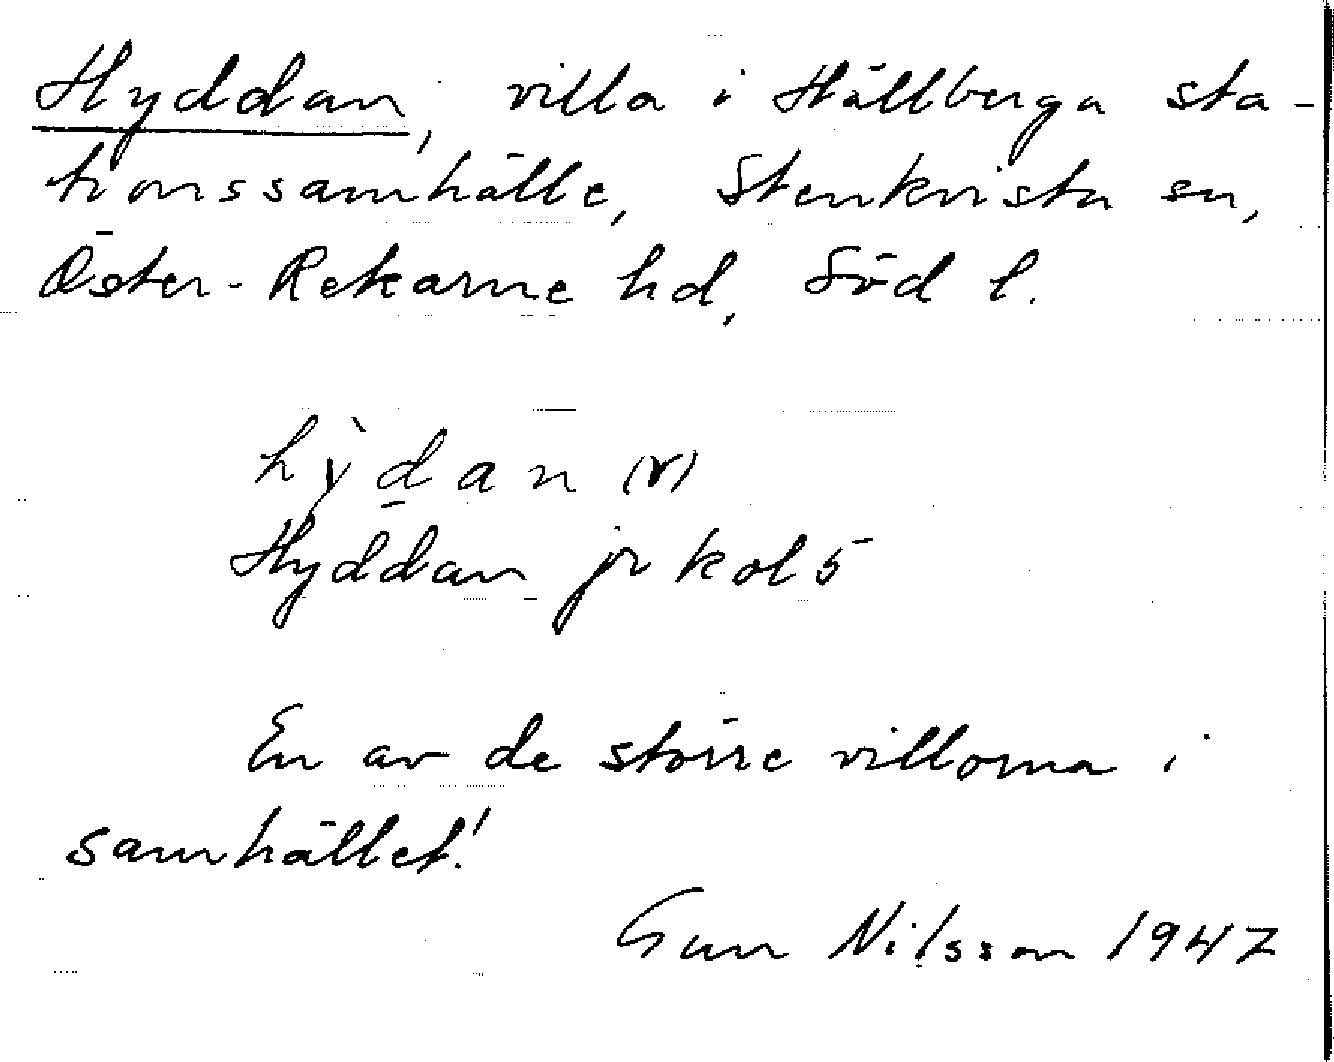 Hyddan, villa i Hällberga sta-
tionssamhälle, Stenkvista sn,
Öster-Rekarne hd, Söd l.
hỳd̲an (r)
Hyddan jr kol 5
En av de större villorna i
samhället!
Gun Nilsson 1947